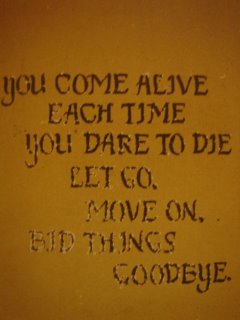 YOU COME ALIVE
EACH TIME
YOU DARE TO DIE
LET GO.
MOVE ON.
BID THINGS
GOODBYE.